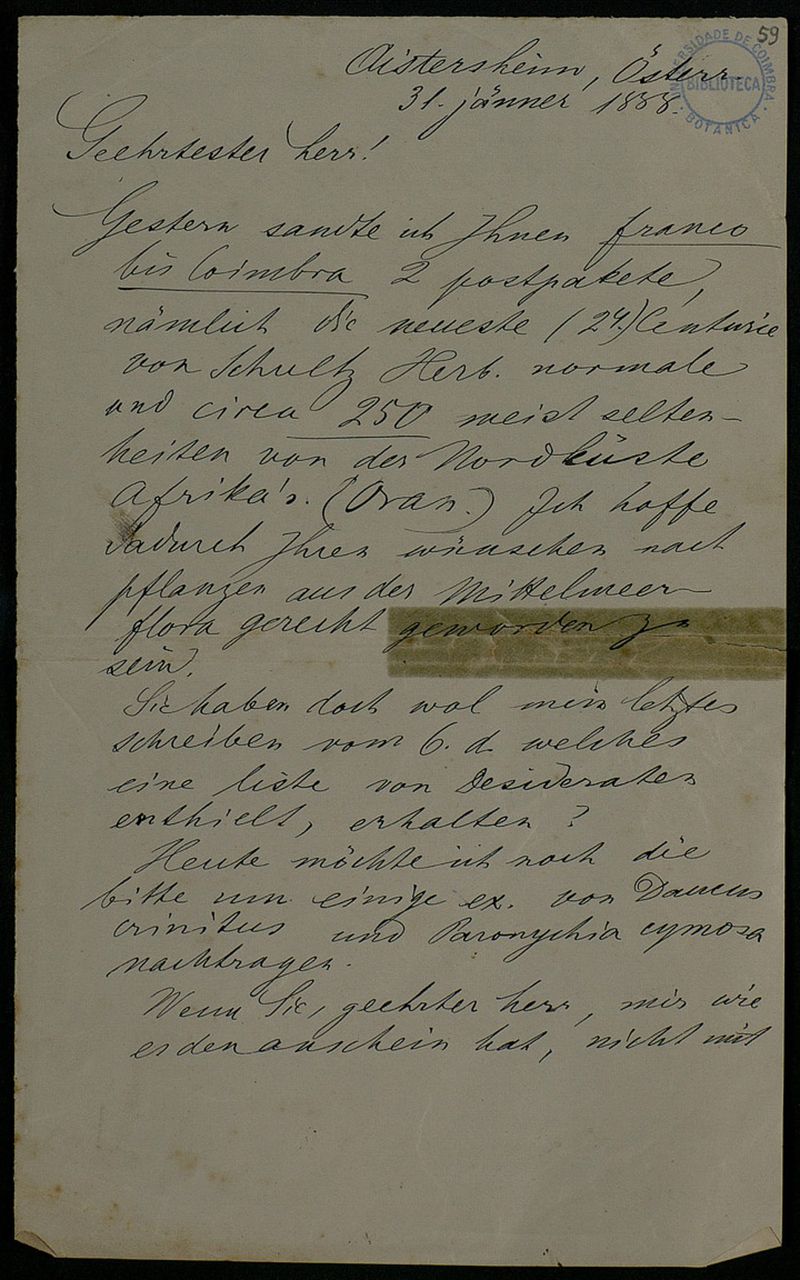 59
UNIVERSIDADE DE COIMBRA
BIBLIOTECA
BOTANICA
Aistersheim, Österr.
31. jänner 1888.
Geehrtester herr!
Gestern sandte ich Ihnen franco
bis Coimbra 2 postpakete,
nämlich die neueste (24.) Centurie
von Schultz Herb. normale
und circa 250 meist selten-
heiten von der Nordküste
Afrika's. (Oran.) Ich hoffe
dadurch Ihren wünschen nach
pflanzen aus der Mittelmeer-
flora gerecht geworden zu
sein.
Sie haben doch wol mein letztes
schreiben vom 6. d. welches
eine liste von Desideraten
enthielt, erhalten?
Heute möchte ich noch die
bitte um einige ex. von Daucus
crinitus und Paronychia cymosa
nachtragen.
Wenn Sie, geehrter herr, mir wie
es den anschein hat, nicht mit